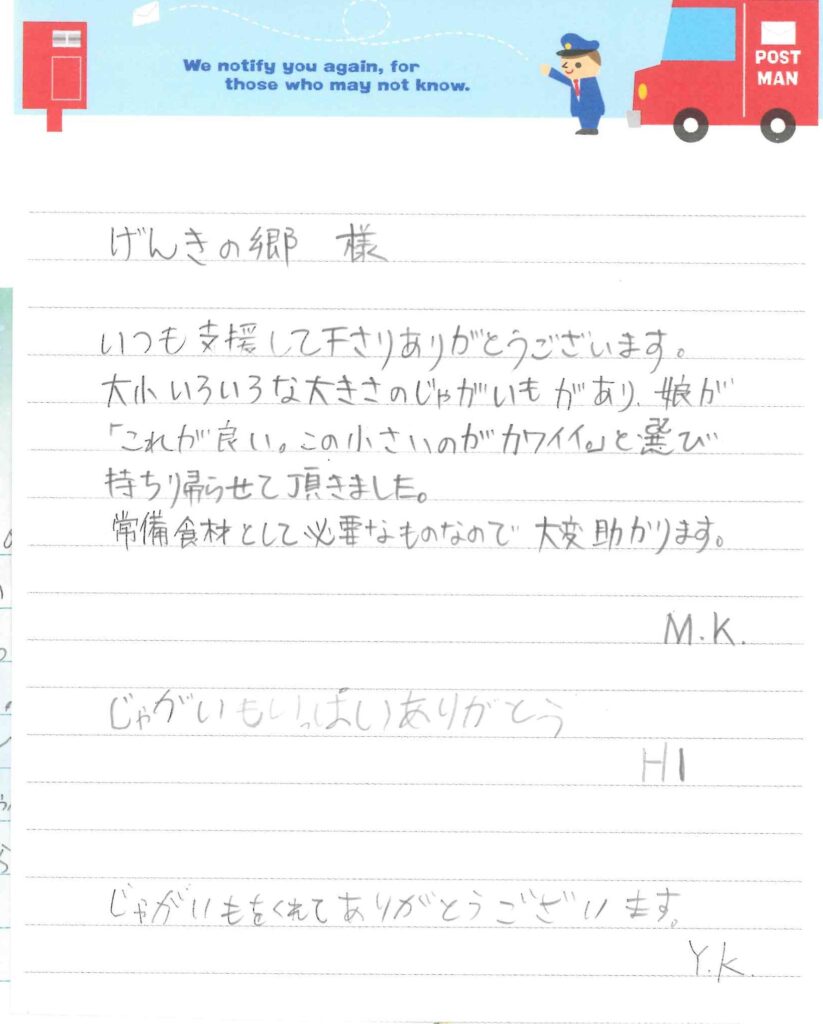 We notify you again, for
those who may not know.
POST
MAN
げんきの郷 様
いつも支援して下さりありがとうございます。
大小いろいろな大きさのじゃがいもがあり、娘が
「これが良い。この小さいのがカワイイ。」と選び
持ち帰らせて頂きました。
常備食材として必要なものなので大変助かります。
M.K.
じゃがいもいっぱいありがとう
HI
じゃがいもをくれてありがとうございます。
Y.K.